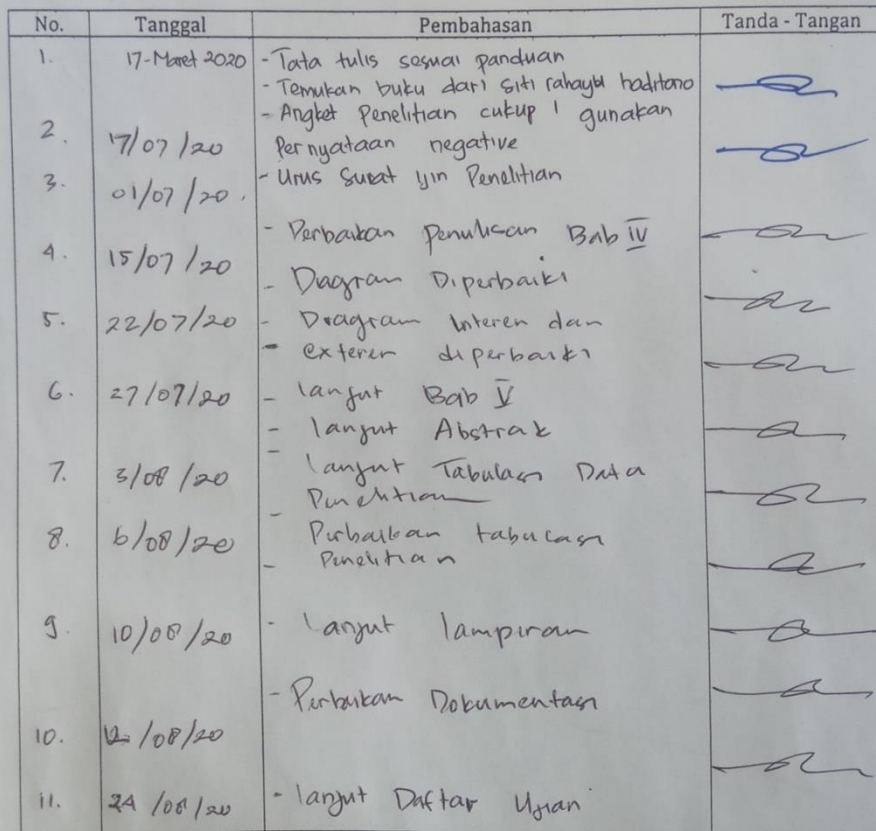 No. Tanggal Pembahasan Tanda - Tangan
1. 17-Maret 2020 - Tata tulis sesuai panduan
- Temukan buku dari siti rahayu haditono
- Angket Penelitian cukup 1 gunakan
2. 17/07/20 Pernyataan negative
3. 01/07/20. - Urus Surat ijin Penelitian
- Perbaikan Penulisan Bab IV
4. 15/07/20
- Diagram Diperbaiki
5. 22/07/20 - Diagram Interen dan
- exteren diperbaiki
6. 27/07/20 - lanjut Bab V
- lanjut Abstrak
7. 3/08/20 - lanjut Tabulasi Data
Penelitian
8. 6/08/20 - Perbaikan tabulasi
Penelitian
9. 10/08/20 - Lanjut lampiran
- Perbaikan Dokumentasi
10. 12/08/20
11. 24/08/20 - lanjut Daftar Ujian